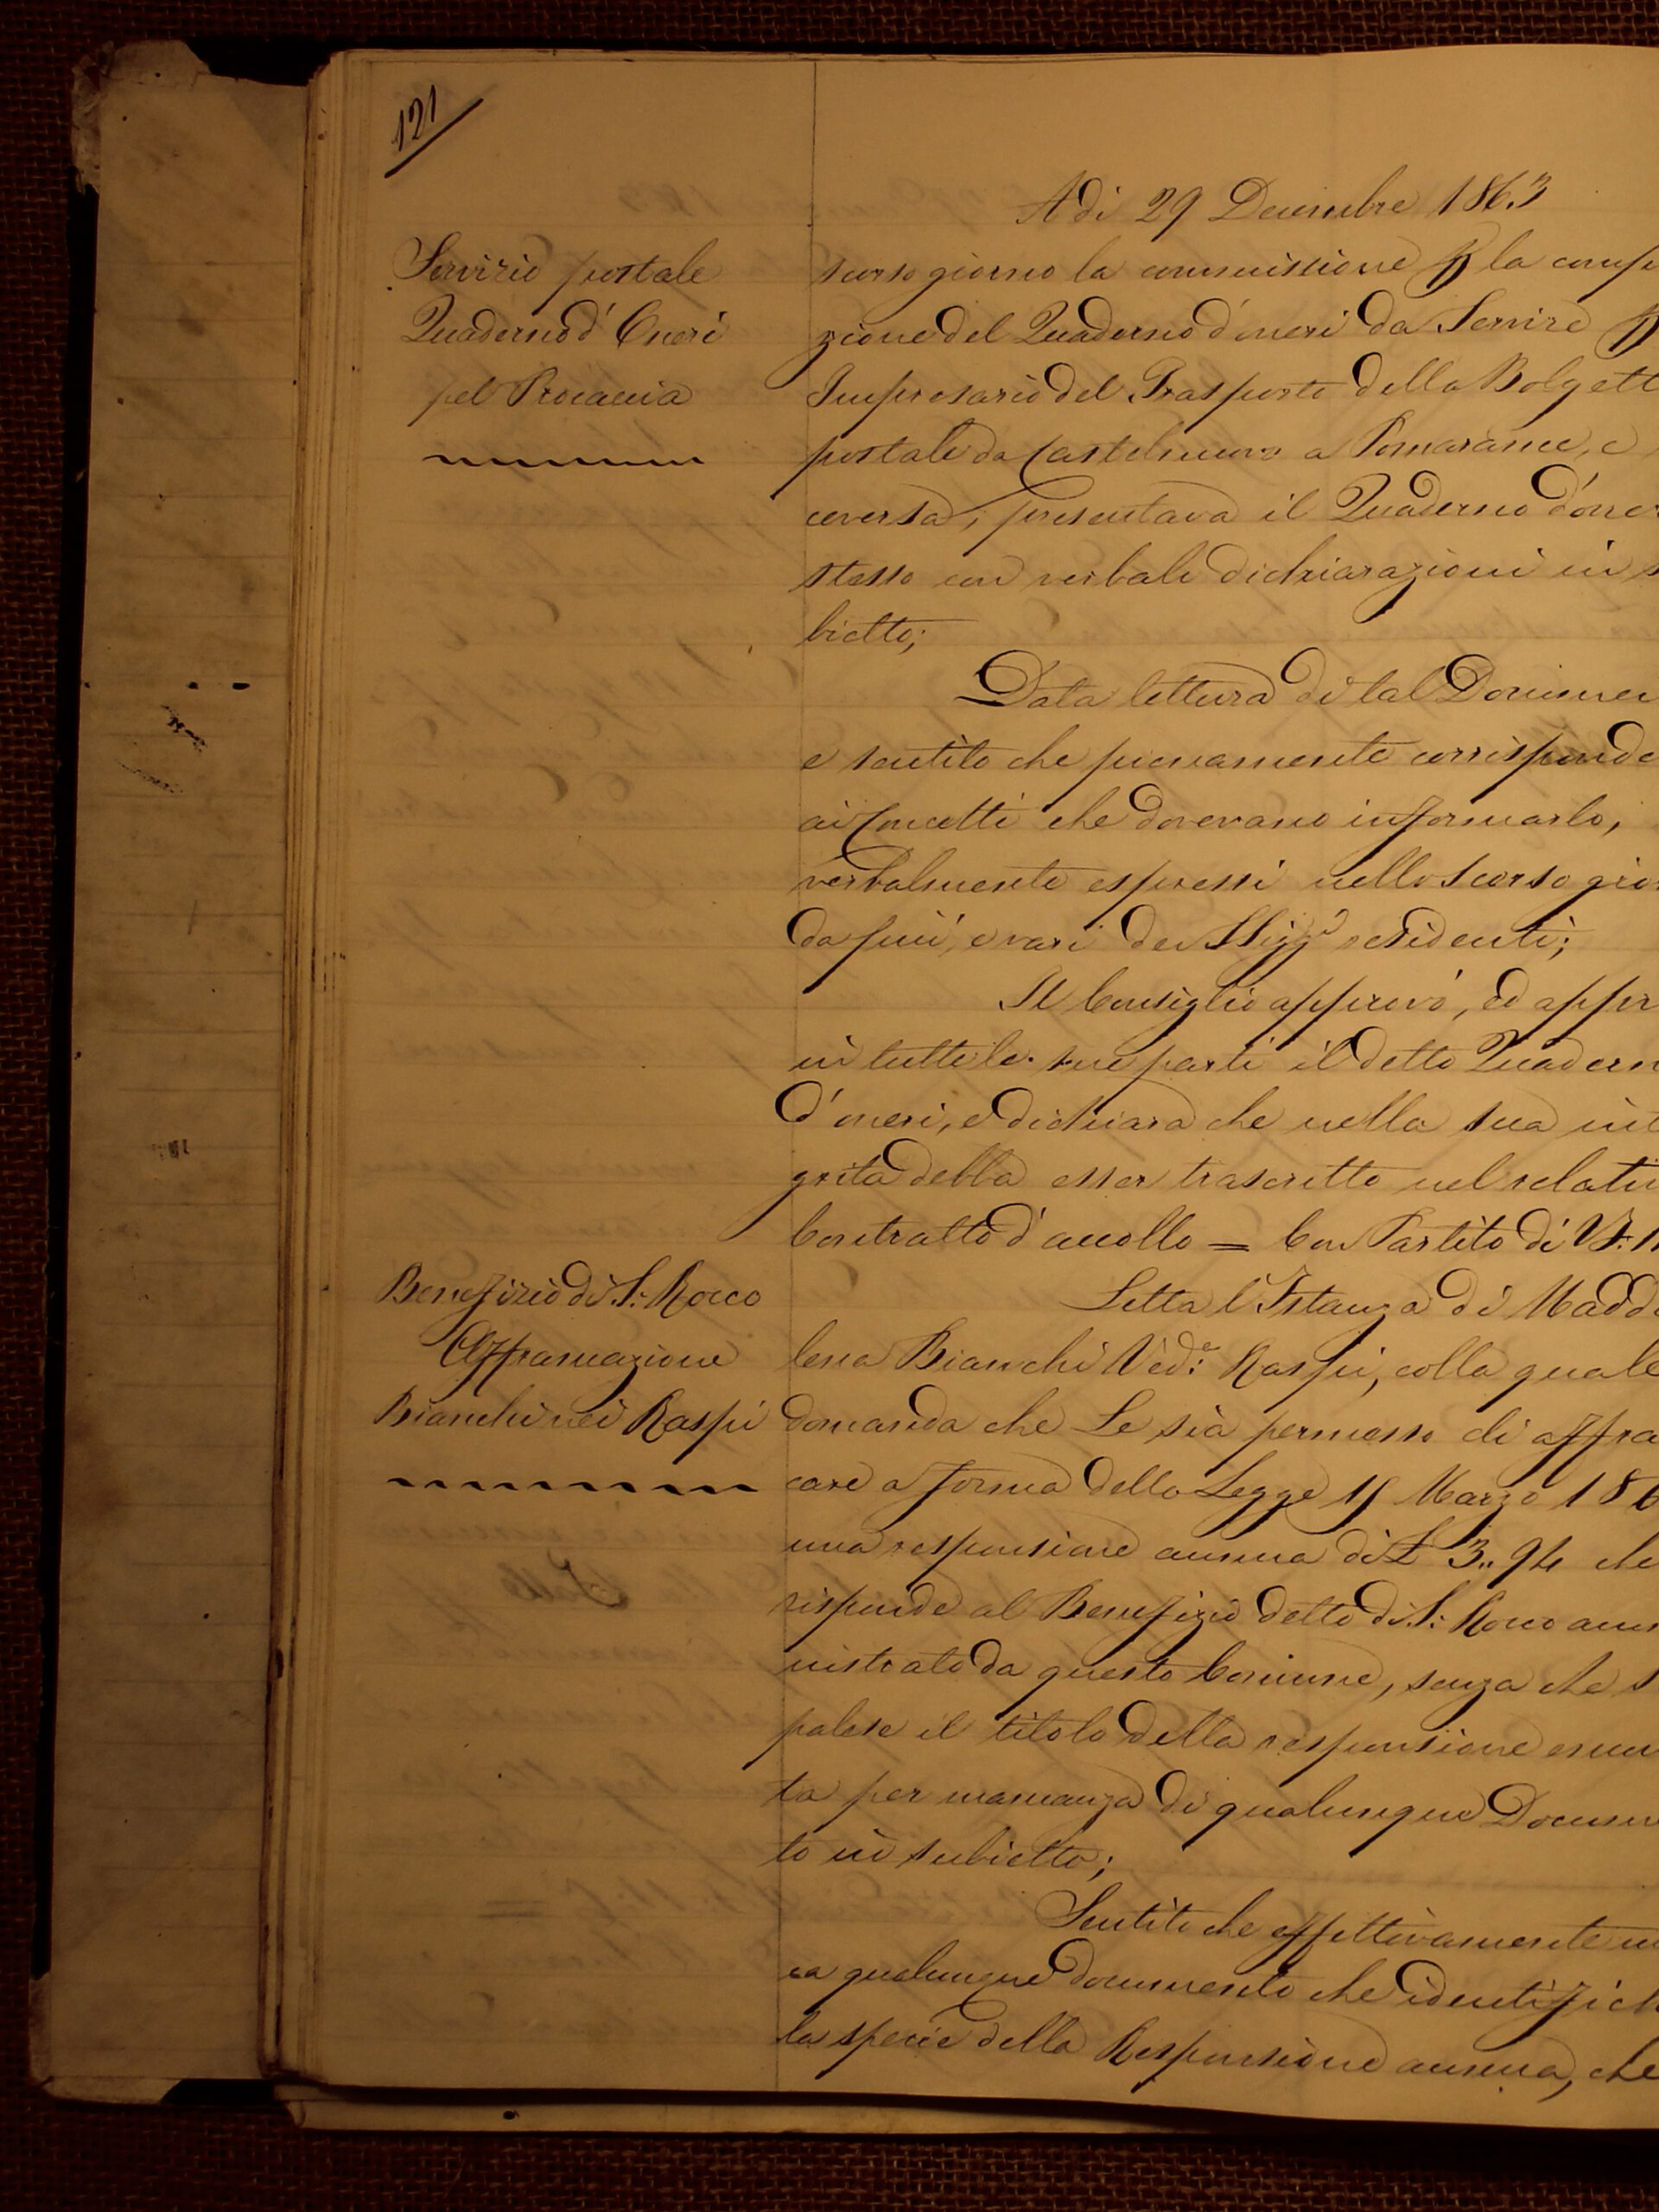 121
Adi 29 Decembre 1863
Servizio postale
Quaderno d'Oneri
pel Procaccia
scorso giorno la commissione p la comp
zione del Quaderno d'oneri da Servire p
Impresario del Trasporto della Bolgett
postale da Castelnuovo a Pomarance, e
ceversa, presentava il Quaderno d'one
stesso con verbali dichiarazioni in s
bietto;
Data lettura di tal Documen
e sentito che pienamente corrisponde
ai Concetti che dovevano informarlo,
verbalmente espressi nello scorso gior
da più, e vari dei SSigg.i residenti;
Il Consiglio approvò, ed appr
in tutte le sue parti il detto Quadern
d'oneri, e dichiara che nella sua int
grità debba esser trascritto nel relati
Contratto d'accollo = Con Partito di Vf.
Benefizio di S: Rocco
Affrancazione
Bianchi nei Raspi
Letta l'Istanza di Madda
lena Bianchi Ved.e Raspi, colla quale
domanda che Le sia permesso di affra
care a forma della Legge 15 Marzo 186
una responsione annua di £ 3.. 94 che
risponde al Benefizio detto di S: Rocco am
nistrato da questo Comune, senza che s
palese il titolo della responsione enun
ta per mancanza di qualunque Docum
to in subietto;
Sentito che effettivamente
ca qualunque documento che identifich
la specie della Responsione annua, che